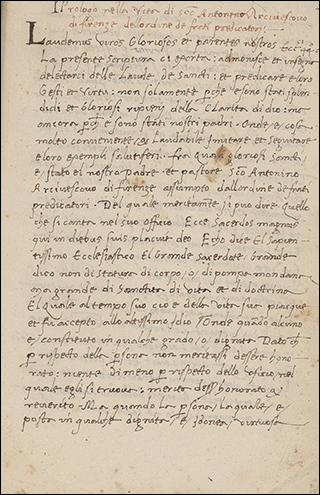 Il prologo nella Vita di sco Antonino Arcivescovo
di firenze dellordine de frati predicatori.
Laudemus viros Gloriosos et parentes nostros
La presente scriptura ci exorta: admonisce et insegna
delectarci delle Laude de Sancti: et predicare e loro
Gesti et Virtù: non solamente pche e sono stati splen
didi et Gloriosi ripieni della Clarita di dio: ma
ancora pche e sono stati nostri padri. Onde e cosa
molto conveniente et Laudabile Imitare et seguitare
e loro exempli salutiferi. fra quali gloriosi Sancti
e stato el nostro Padre et pastore Sco Antonino
Arcivescovo di firenze assumpto dallordine de frati
predicatori. Del quale meritamte si puo dire Quello
che si canta nel suo officio Ecce Sacerdos magnus
qui in diebus suis placuit deo Echo dice El Sapien
tissimo Ecclesiastico El Grande Sacerdote: Grande
dico non di statura di corpo, o, di pompa mondana
ma grande di Sanctita di vita et di doctrina
El quale al tempo suo cio e della vita sua piacque
et fu accepto allo altissimo Idio. Onde quado alcuno
e, constituto in qualche grado, o, dignita Dato che
p rispecto della psona non meritassi dessere hono
rato: niente di meno p rispecto dello oficio, nel
quale egli si truova: merita desser honorato et
reverito. Ma quando la psona, laquale, e
posta in qualche dignita, e Idonea, virtuosa